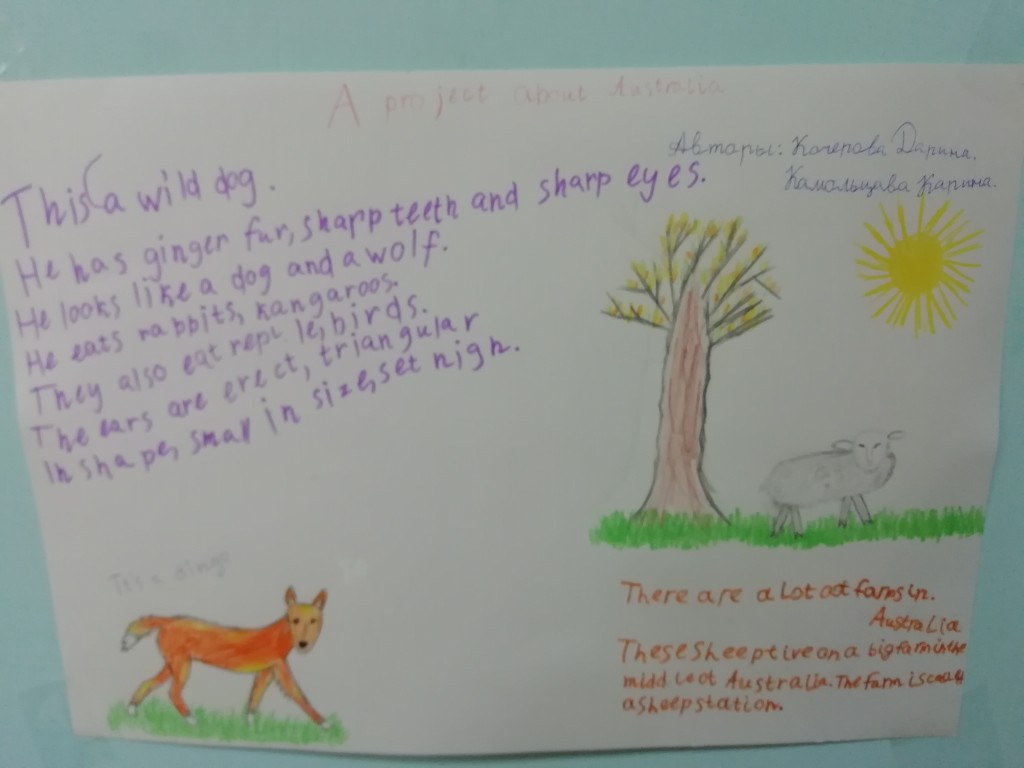 A project about Australia
Авторы: Кочерова Дарина.
Камольцава Карина.
This a wild dog.
He has ginger fur, sharp teeth and sharp eyes.
He looks like a dog and a wolf.
He eats rabbits, kangaroos.
They also eat reptile, birds.
The ears are erect, triangular
in shape, small in size, set nigh.
It's a dingo
There are a Lot oot farms in.
Australia
These sheep live on a big farm in the
middle of Australia. The farm is
a sheep station.